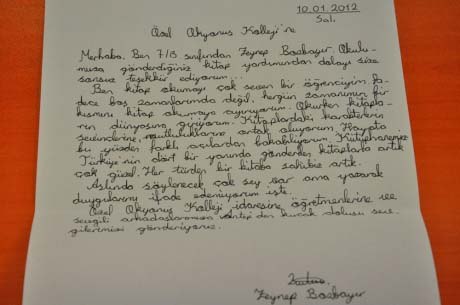 10.01.2012
Salı.
Özel Okyanus Kolleji'ne
Merhaba. Ben 7/B sınıfından Zeynep Bozbayır. Okulu-
muza gönderdiğiniz kitap yardımından dolayı size
sonsuz teşekkür ediyorum...
Ben kitap okumayı çok seven bir öğrenciyim. Sa-
dece boş zamanlarımda değil, hergün zamanımın bir
kısmını kitap okumaya ayırıyorum. Okurken kitapla-
rın dünyasına giriyorum. Kitaplardaki karakterlerin
sevinclerine, mutluluklarına ortak oluyorum. Hayata
bu yüzden farklı açılardan bakabiliyorum. Kütüphanemiz
Türkiye'nin dört bir yanında gönderilen kitaplarla artık
çok güzel. Her türden bir kitaba sahibiz artık.
Aslında söylenecek çok şey var ama yazarak
duygularımı ifade edemiyorum işte.
Özel Okyanus Kolleji idaresine, öğretmenlerine ve
sevgili arkadaşlarımıza kucak dolusu sev-
gilerimizi gönderiyoruz.
Zeynep Bozbayır